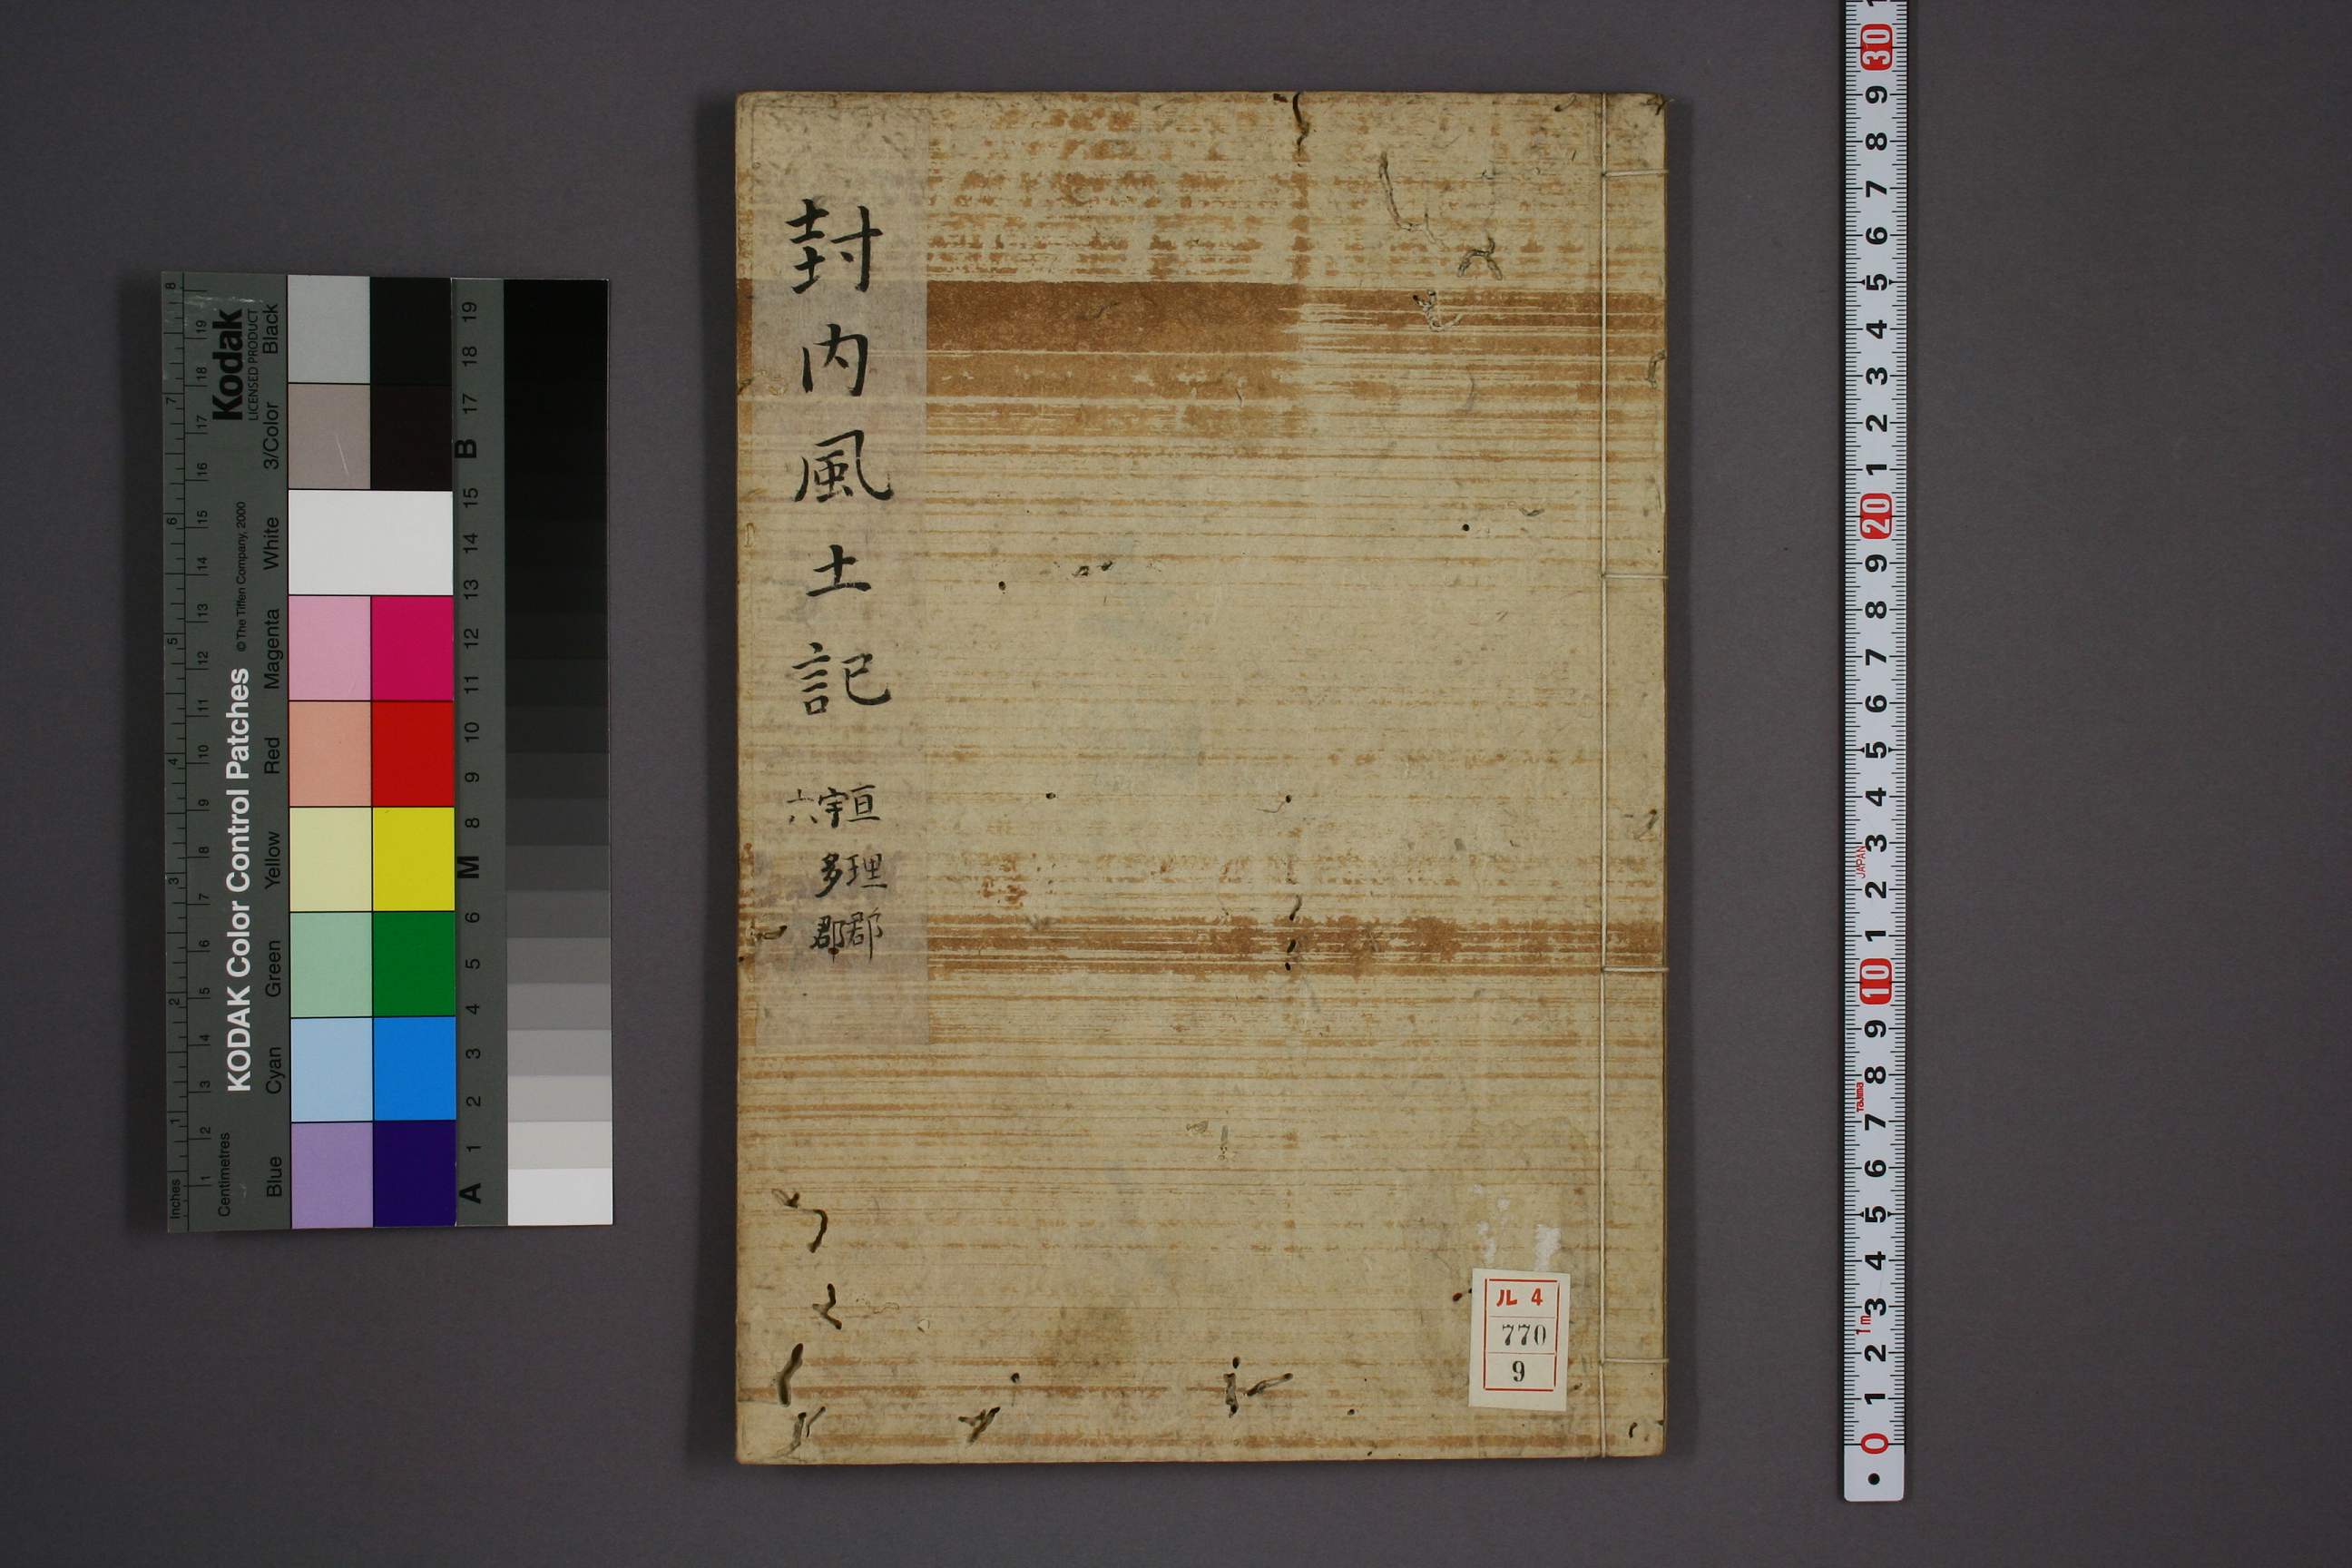 封内風土記
亘理郡
宇多郡
六
ル 4
770
9
KODAK Color Control Patches
© The Tiffen Company, 2000
Kodak
LICENSED PRODUCT
Inches
Centimetres
1 2 3 4 5 6 7 8
1 2 3 4 5 6 7 8 9 10 11 12 13 14 15 16 17 18 19
Blue
Cyan
Green
Yellow
Magenta
Red
White
3/Color
Black
A 1 2 3 4 5 6 M 8 9 10 11 12 13 14 15 B 17 18 19
0 1 2 3 4 5 6 7 8 9 10 1 2 3 4 5 6 7 8 9 20 1 2 3 4 5 6 7 8 9 30 1
1m
Tajima
JAPAN